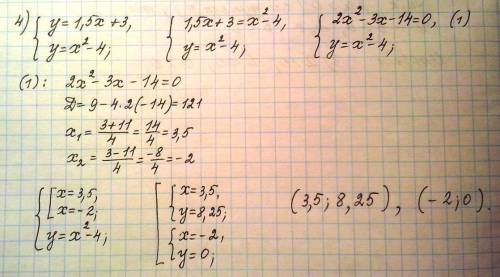 4) { y=1,5x+3, y=x²-4; { 1,5x+3=x²-4, y=x²-4; { 2x²-3x-14=0, (1) y=x²-4;
(1): 2x²-3x-14=0
D=9-4·2(-14)=121
x₁=(3+11)/4=14/4=3,5
x₂=(3-11)/4=-8/4=-2
{ [ x=3,5, x=-2, y=x²-4; [ { x=3,5, y=8,25; { x=-2, y=0; (3,5; 8,25), (-2; 0).